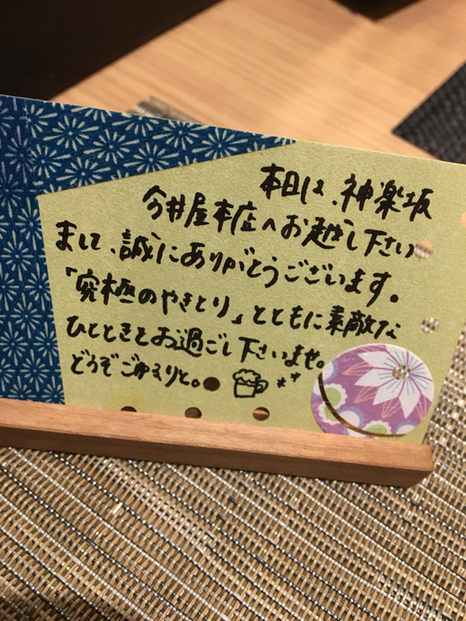 本日は、神楽坂
今井屋本店へお越し下さい
まして、誠にありがとうございます。
「究極のやきとり」とともに素敵な
ひとときをお過ごし下さいませ。
どうぞごゆるりと。